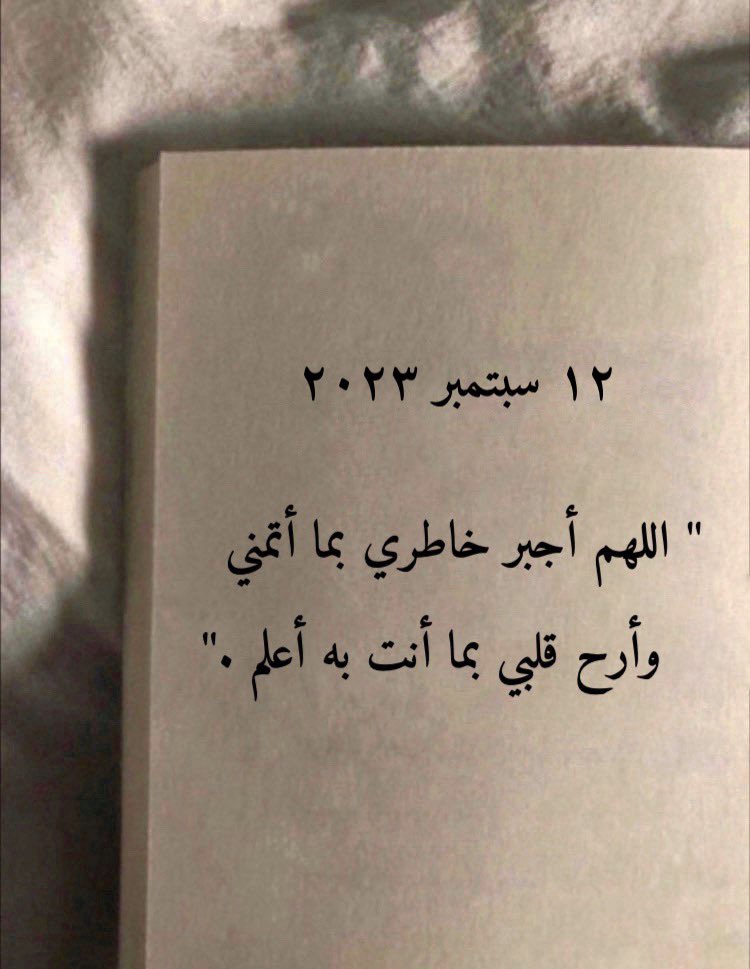 ١٢ سبتمبر ٢٠٢٣
" اللهم أجبر خاطري بما أتمني
وأرح قلبي بما أنت به أعلم ."